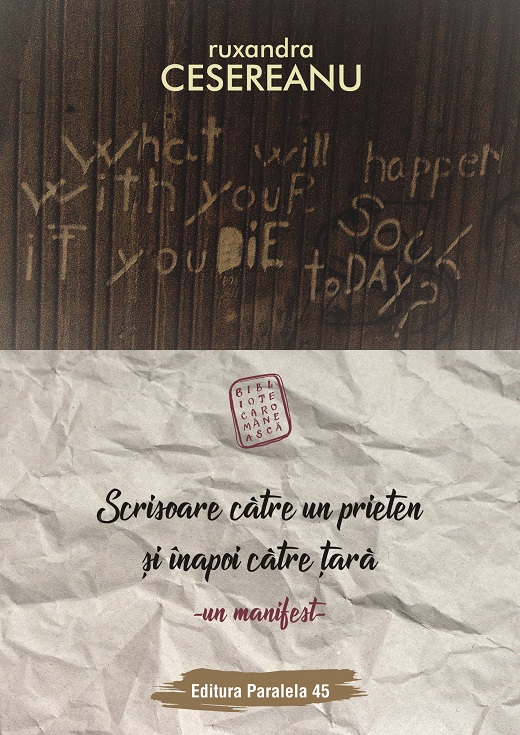 ruxandra
CESEREANU
What will happen
with your SOUL
if you DiE toDAY?
BIBL
IOTE
CARO
MÂNE
ASCĂ
Scrisoare către un prieten
și înapoi către țară
-un manifest-
Editura Paralela 45